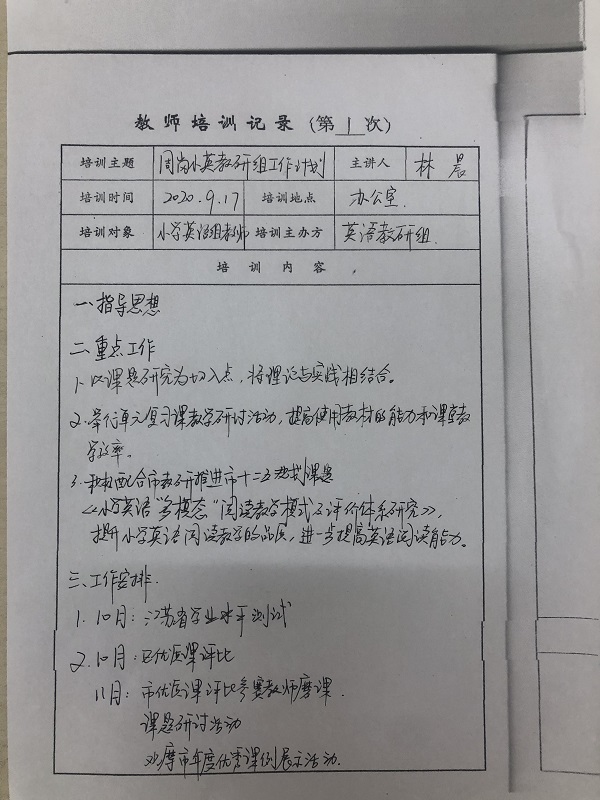 教师培训记录（第1次）
培训主题 周岗小英教研组工作计划 主讲人 林晨
培训时间 2020.9.17 培训地点 办公室.
培训对象 小学英语组教师 培训主办方 英语教研组.
培训内容
一.指导思想
二.重点工作
1.以课题研究为切入点，将理论与实践相结合。
2.举行单元复习课教学研讨活动，提高使用教材的能力和课堂教
学效率。
3.积极配合市教研推进市十二五规划课题
《小学英语"多模态"阅读教学模式及评价体系研究》，
提升小学英语阅读教学的品质，进一步提高英语阅读能力。
三.工作安排.
1.10月：江苏省学业水平测试
2.10月：区优质课评比
11月：市优质课评比参赛教师磨课.
课题研讨活动
观摩市年度优秀课例展示活动.